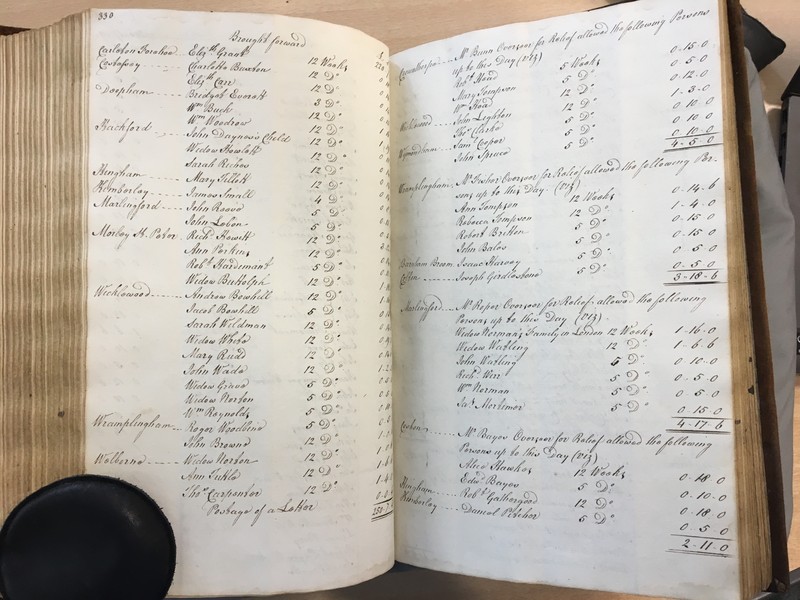 330
Brought forward
Carleton Forehoe Eliz.th Grant 12 Weeks
Costessey Charlotte Buxton 12 D.o
Eliz.th Carr 12 D.o
Deopham Bridget Everett 12 D.o
W.m Buck 3 D.o
W.m Woodrow 12 D.o
Hackford John Daynes's Child 12 D.o
Widow Howlett 12 D.o
Sarah Richos 12 D.o
Hingham Mary Tillett 12 D.o
Kimberley James Small 4 D.o
Marlingford John Reeve 5 D.o
John Lebon 5 D.o
Morley St. Peter Rich.d Howitt 12 D.o
Ann Perkins 12 D.o
Rob.t Hardiment 5 D.o
Widow Buttolph 12 D.o
Wicklewood Andrew Bowhill 12 D.o
Jacob Bowhill 5 D.o
Sarah Wildman 12 D.o
Widow White 12 D.o
Mary Rudd 12 D.o
John Wade 12 D.o
Widow Grave 5 D.o
Widow Norton 5 D.o
W.m Reynolds 5 D.o
Wramplingham Roger Woodbine 5 D.o
John Browne 12 D.o
Welborne Widow Norton 12 D.o
Ann Tickle 12 D.o
Tho.s Carpenter 12 D.o
Postage of a Letter
Crownthorpe M.r Bunn Overseer for Relief allowed the following Persons
up to this Day (viz)
Rob.t Ward 5 Weeks 0-15-0
Mary Tompson 5 D.o 0-5-0
W.m Head 12 D.o 0-12-0
Wicklewood John Leighton 12 D.o 1-3-0
Tho.s Clarke 5 D.o 0-10-0
Wymondham Sam.l Coper 5 D.o 0-10-0
John Spruce 5 D.o 0-10-0
4-5-0
Wramplingham M.r Fisher Overseer for Relief allowed the following Per-
sons up to this Day (viz)
Ann Tompson 12 Weeks 0-14-6
Rebecca Tompson 12 D.o 1-4-0
Robert Britton 5 D.o 0-15-0
John Bales 5 D.o 0-15-0
Barnham Broom Isaac Harvey 5 D.o 0-5-0
Colton Joseph Girdlestone 5 D.o 0-5-0
3-18-6
Marlingford M.r Roper Overseer for Relief allowed the following
Persons up to this Day (viz)
Widow Norman's Family in London 12 Weeks 1-16-0
Widow Watling 12 D.o 1-6-6
John Watling 5 D.o 0-10-0
Rich.d Wirr 5 D.o 0-5-0
W.m Norman 5 D.o 0-5-0
Ja.s Mortimer 5 D.o 0-15-0
4-17-6
Coston M.r Bayes Overseer for Relief allowed the following
Persons up to this Day (viz)
Alice Hawkes 12 Weeks 0-18-0
Edw.d Bayes 5 D.o 0-10-0
Hingham Rob.t Gathergood 12 D.o 0-18-0
Kimberley Daniel Pitcher 5 D.o 0-5-0
2-11-0